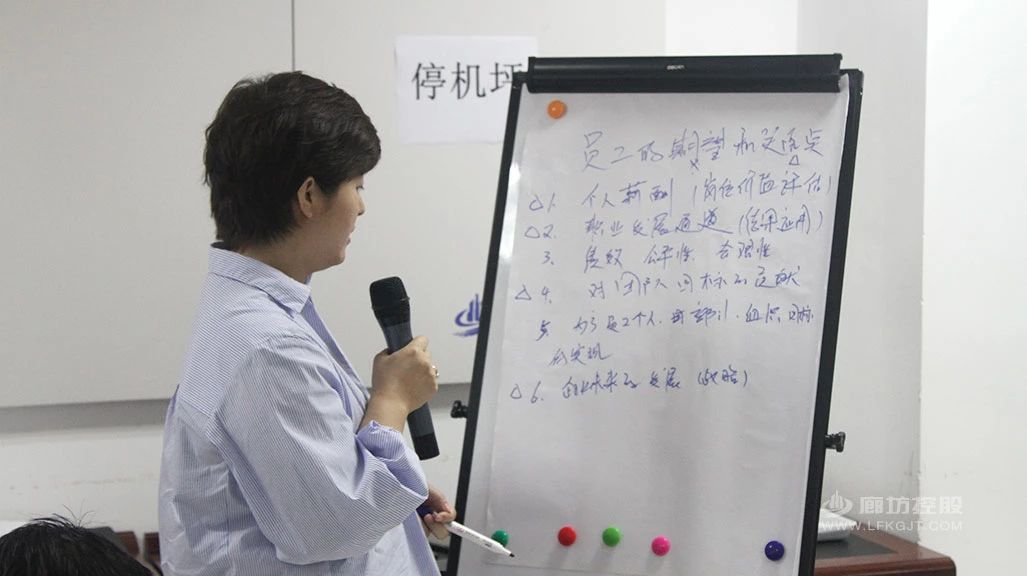 停机坪
员工的期望和关注点
△1. 个人薪酬（岗位价值评估）
△2. 职业发展通道（结果应用）
3. 公平性、合理性
△4. 对团队目标的贡献
5. 个人、部门、组织目标
的实现
△6. 企业未来的发展（战略）
廊坊控股
WWW.LFKGJT.COM